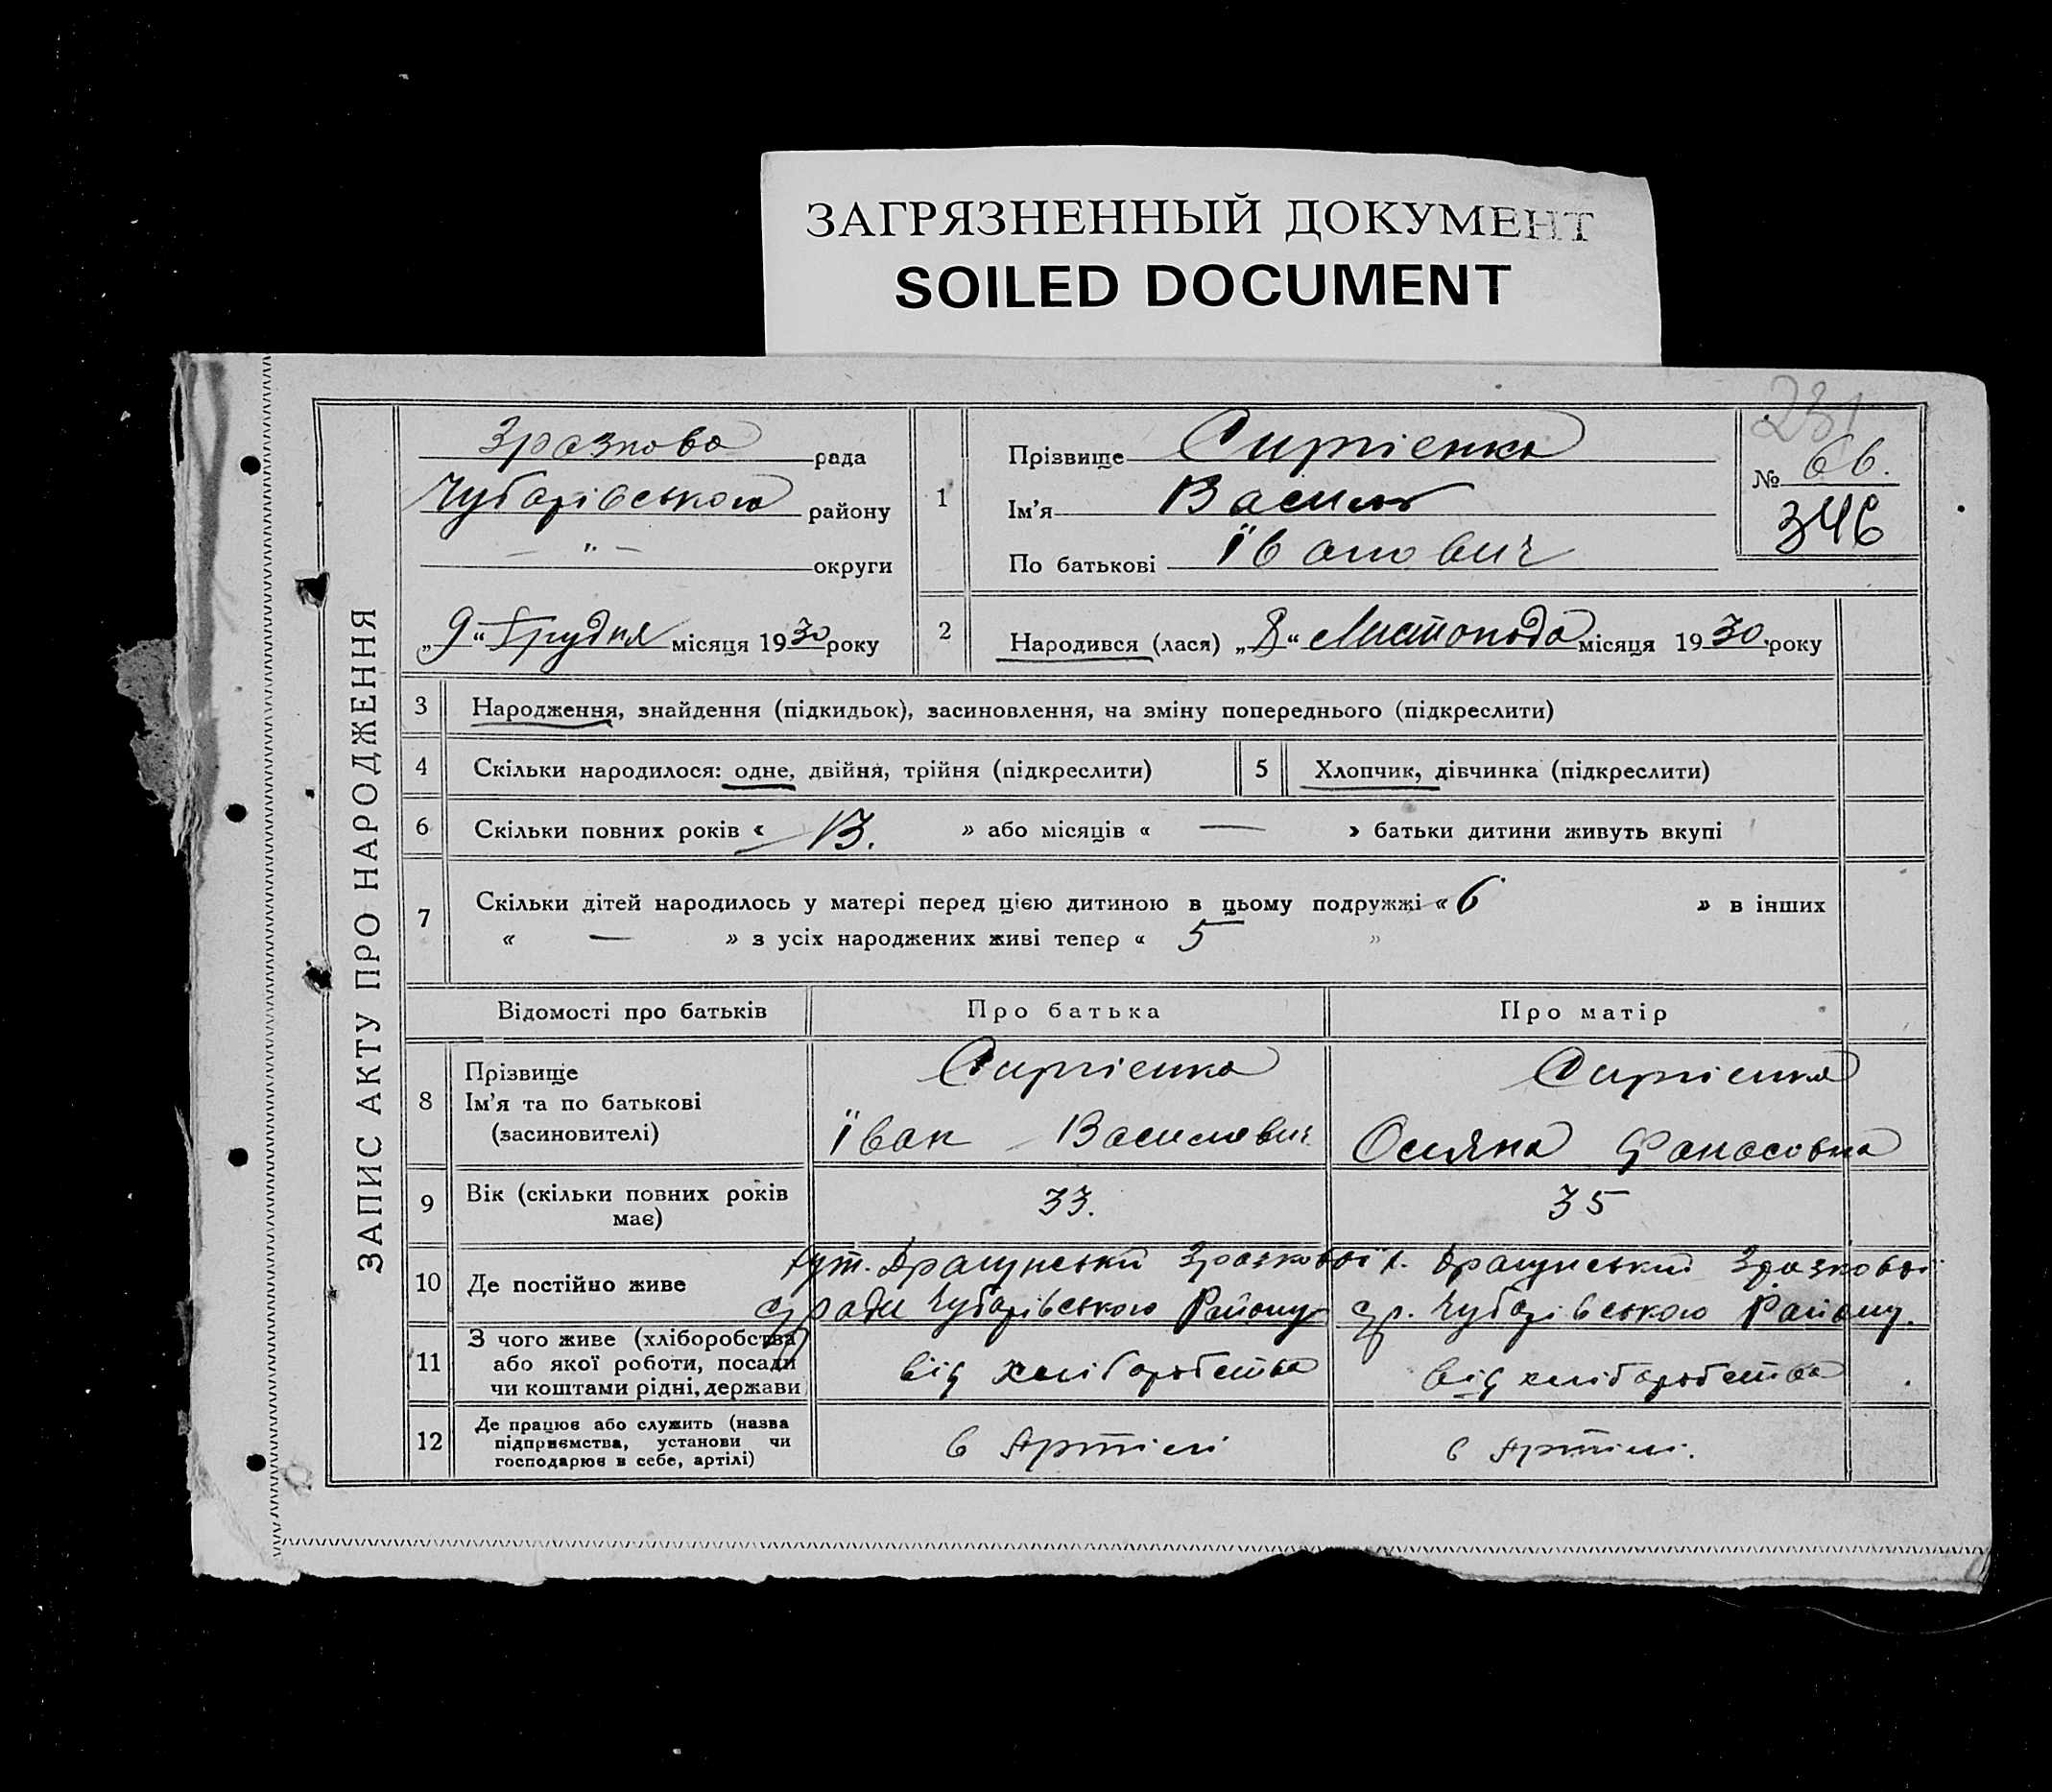 ЗАГРЯЗНЕННЫЙ ДОКУМЕНТ
SOILED DOCUMENT
ЗАПИС АКТУ ПРО НАРОДЖЕННЯ
231
Зразкова рада
Чубарівського району
— „ — округи
„9“ Грудня місяця 1930 року
1
Прізвище Сиргієнко
Ім'я Василь
По батькові Їванович
№ 66.
346
2 Народився (лася) „8“ Листопада місяця 1930 року
3 Народження, знайдення (підкидьок), засиновлення, на зміну попереднього (підкреслити)
4 Скільки народилося: одне, двійня, трійня (підкреслити)
5 Хлопчик, дівчинка (підкреслити)
6 Скільки повних років « 13. » або місяців « — » батьки дитини живуть вкупі
7 Скільки дітей народилось у матері перед цією дитиною в цьому подружжі « 6 » в інших
« — » з усіх народжених живі тепер « 5 »
Відомості про батьків Про батька Про матір
8 Прізвище
Ім'я та по батькові
(засиновителі)
Сиргієнко
Їван Василевич
Сиргієнко
Оксяна Фанасовна
9 Вік (скільки повних років
має)
33.
35
10 Де постійно живе
хут. Драгунський Зразкової
с/ради Чубарівського Району
х. Драгунський Зразкової
с/р. Чубарівського Району.
11 З чого живе (хліборобства
або якої роботи, посади
чи коштами рідні, держави
від хліборобства
від хліборобства
12 Де працює або служить (назва
підприємства, установи чи
господарює в себе, артілі)
в Артілі
в Артілі.